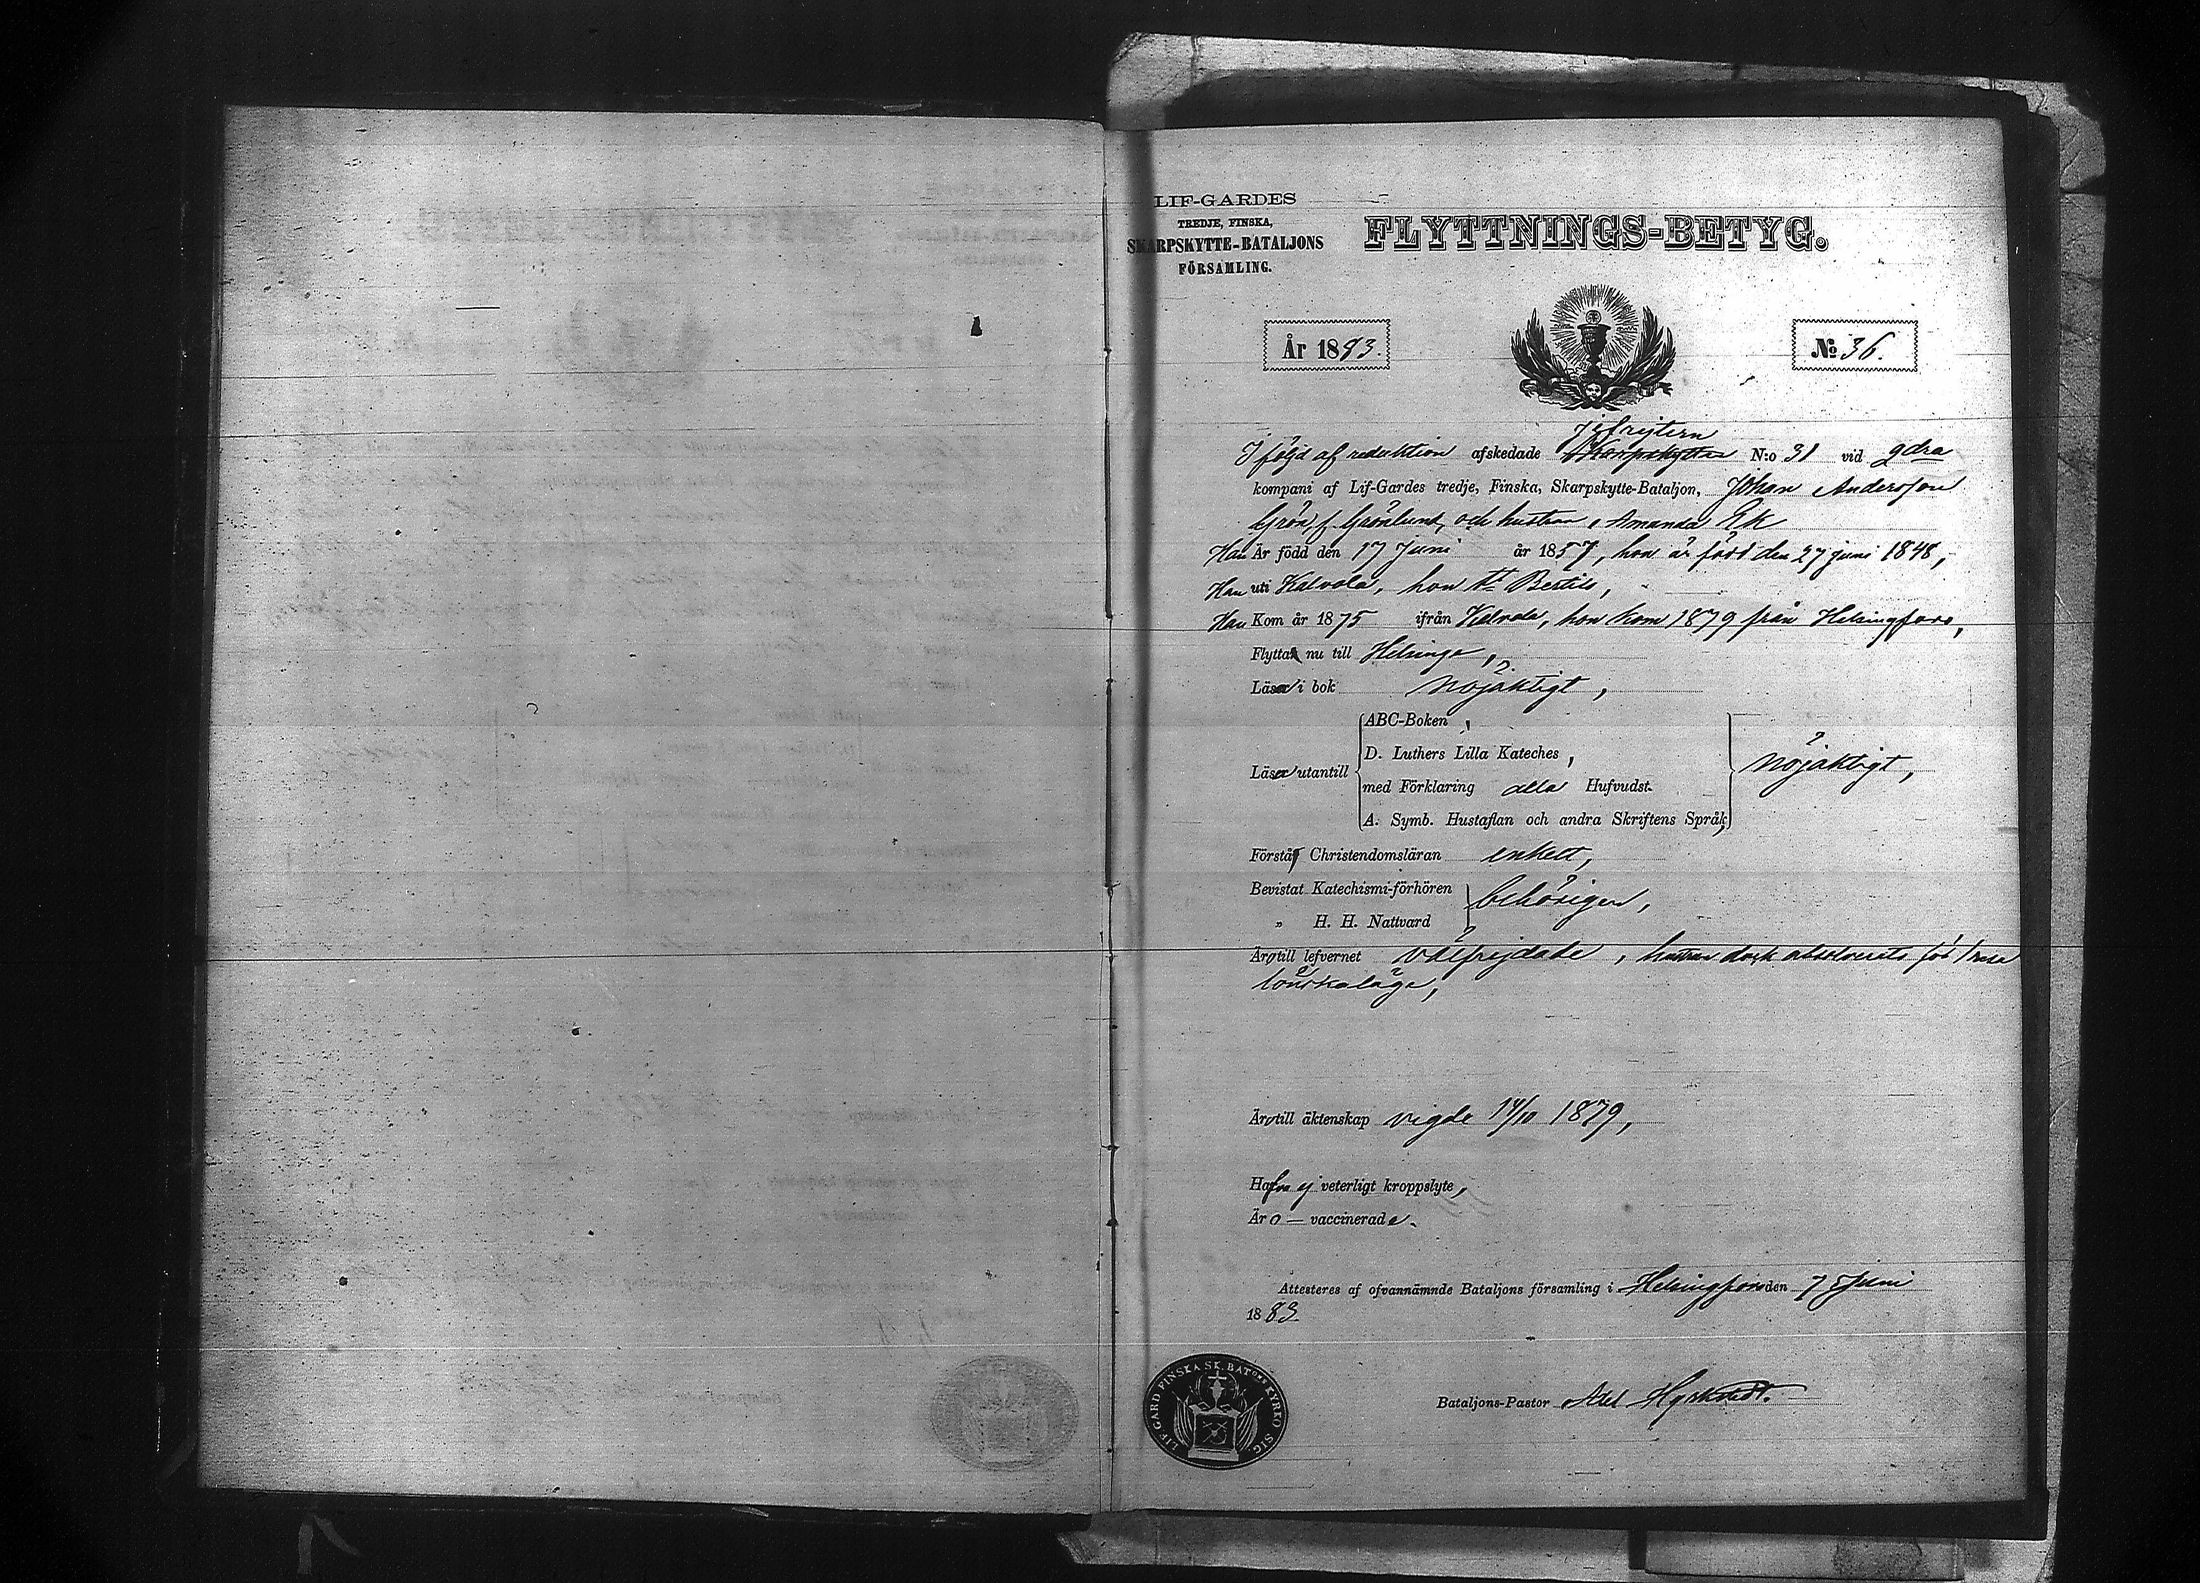 LIF-GARDES
TREDJE, FINSKA,
SKARPSKYTTE-BATALJONS
FÖRSAMLING.
FLYTTNINGS-BETYG.
År 1883.
No 36.
Jefrejtern
I följd af reduktion afskedade Skarpskytten N:o 31 vid 2dra
kompani af Lif-Gardes tredje, Finska, Skarpskytte-Bataljon, Johan Andersson
Grön, f. Grönlund, och hustrun, Amanda Ek
Han Är född den 17 Juni år 1857, hon är född den 27 juni 1848,
Han uti Kalvola, hon St Bertils,
Han Kom år 1875 ifrån Kalvola, hon kom 1879 från Helsingfors,
Flytta nu till Helsinge,
Läsa i bok nöjaktigt,
Läsa utantill
ABC-Boken,
D. Luthers Lilla Kateches,
med Förklaring alla Hufvudst.
A. Symb. Hustaflan och andra Skriftens Språk,
nöjaktigt,
Förstå Christendomsläran enkelt,
Bevistat Katechismi-förhören
„ H. H. Nattvard
behörigen,
Äro till lefvernet välfrejdade, hustrun dock absolverats för 1 resa
lönskaläge,
Äro till äktenskap vigde 14/10 1879,
Hafva ej veterligt kroppslyte,
Äro — vaccinerade.
Attesteras af ofvannämnde Bataljons församling i Helsingfors den 7 Juni
1883.
Bataljons-Pastor Axel Hyrkstedt.
LIF-GARD FINSKA SK. BATONS KYRKO SIG.